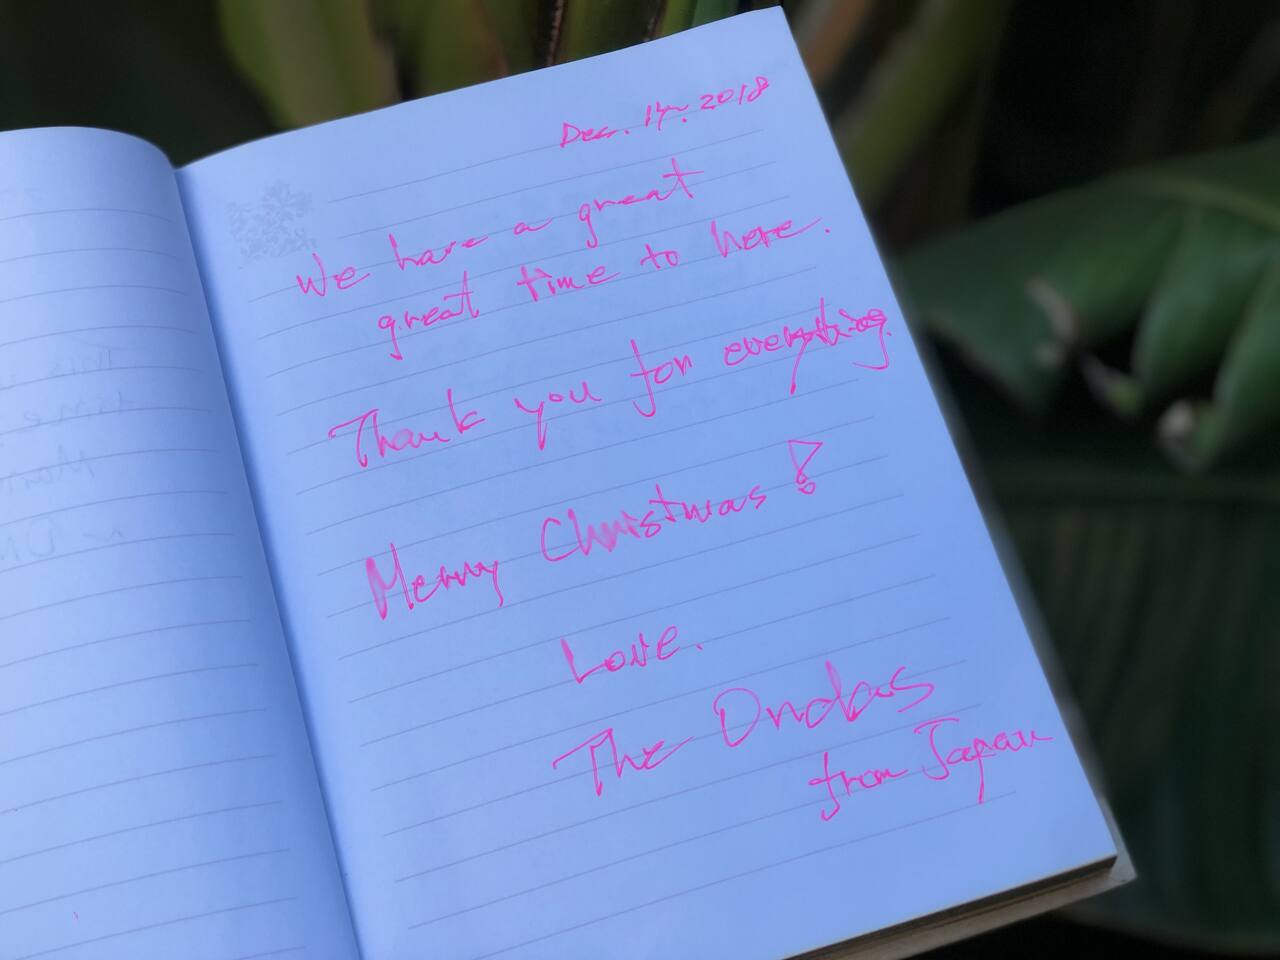 Dec. 14. 2018
We have a great
great time to here.
Thank you for everything.
Merry Christmas!
Love.
The Ondas
from Japan